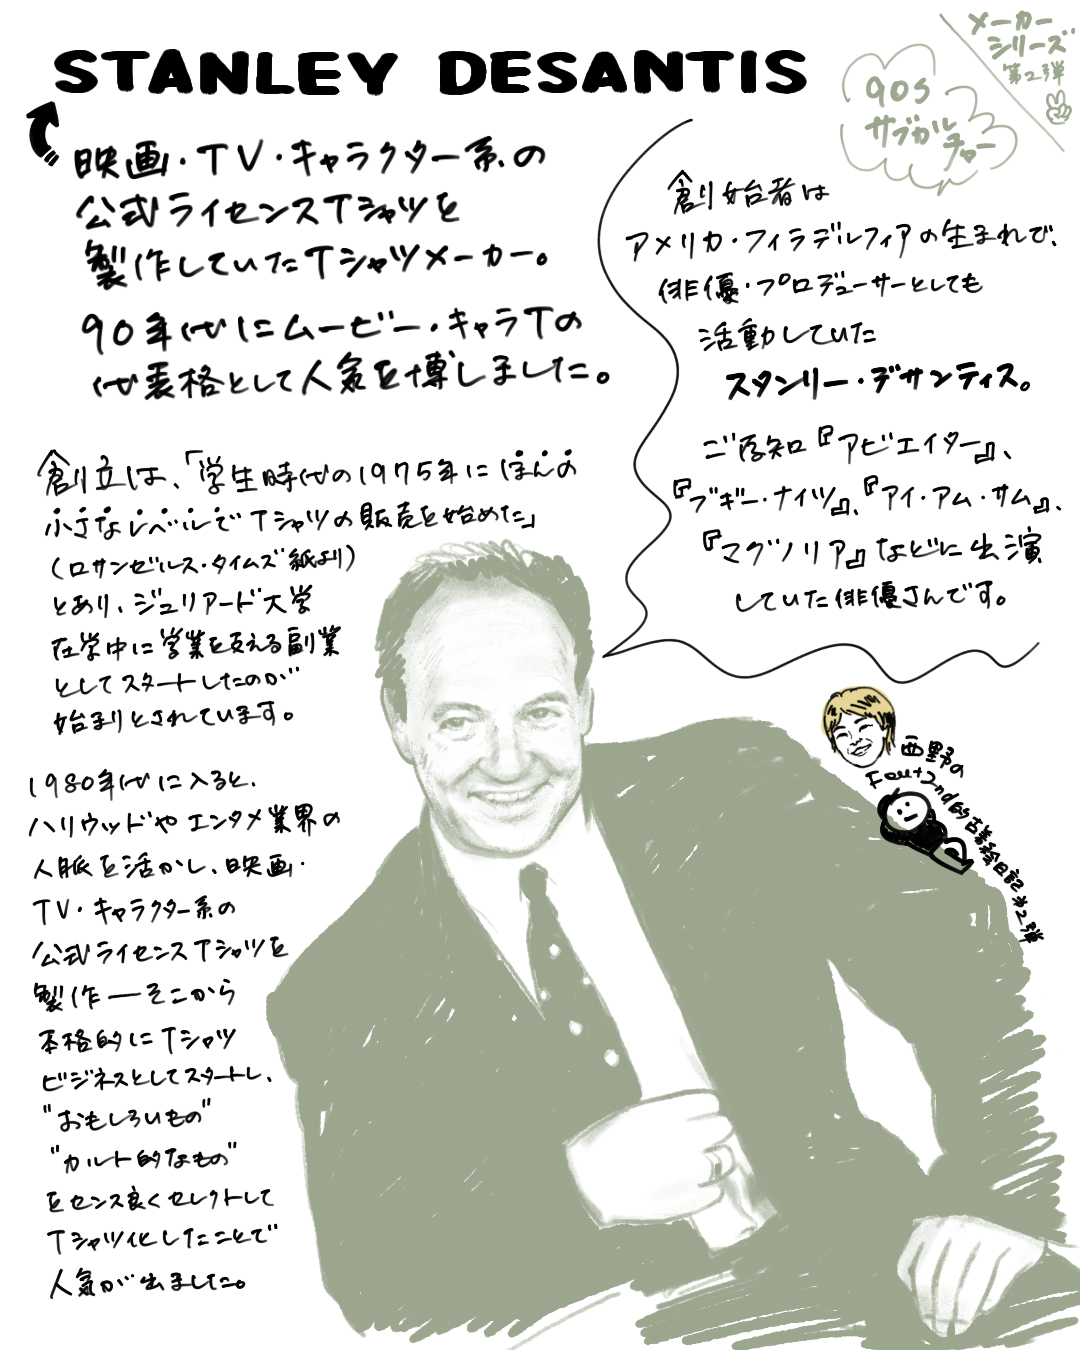 STANLEY DESANTIS
メーカー
シリーズ
第2弾
90s
サブカル
チャー
映画・TV・キャラクター系の
公式ライセンスTシャツを
製作していたTシャツメーカー。
90年代にムービー・キャラTの
代表格として人気を博しました。
創始者は
アメリカ・フィラデルフィアの生まれで、
俳優・プロデューサーとしても
活動していた
スタンリー・デサンティス。
ご存知『アビエイター』、
『ブギー・ナイツ』、『アイ・アム・サム』、
『マグノリア』などに出演
していた俳優さんです。
創立は、「学生時代の1975年にほんの
小さなレベルでTシャツの販売を始めた」
(ロサンゼルス・タイムズ紙より)
とあり、ジュリアード大学
在学中に営業を支える副業
としてスタートしたのが
始まりとされています。
1980年代に入ると、
ハリウッドやエンタメ業界の
人脈を活かし、映画・
TV・キャラクター系の
公式ライセンスTシャツを
製作―そこから
本格的にTシャツ
ビジネスとしてスタートし、
"おもしろいもの"
"カルト的なもの"
をセンス良くセレクトして
Tシャツ化したことで
人気が出ました。
西野の
Feu+2nd的古着絵日記第2弾